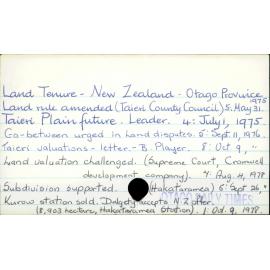 Land Tenure - New Zealand - Otago Province
Land rule amended (Taieri County Council) 5. May 31. 1975
Taieri Plain future. Leader. 4: July 1, 1975
Go-between urged in land disputes. 5: Sept. 11, 1976.
Taieri valuations - letter - B. Player. 8: Oct 9, "
Land valuation challenged. (Supreme Court, Cromwell
development company). 4: Aug. 4, 1978
Subdivision supported. (Hakataramea) 5: Sept 26, "
Kurow station sold. Dalgety accepts NZ offer.
(8,903 hectare, Hakataramea Station). 1: Oct. 9, 1978.
OTAGO DAILY TIMES